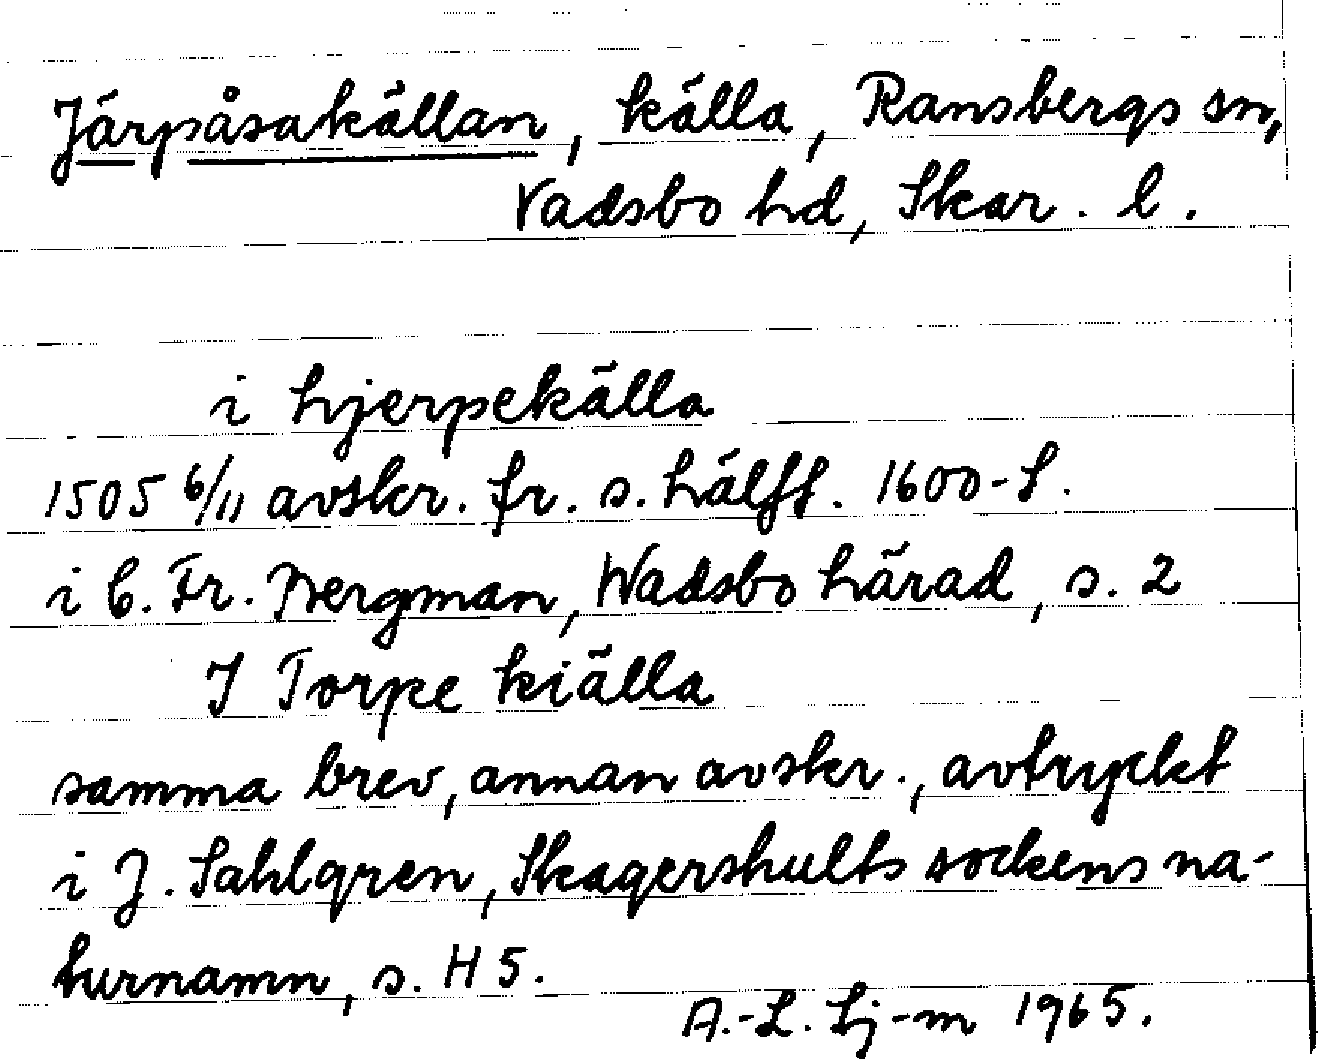 Järpåsakällan, källa, Ransbergs sn,
Vadsbo hd, Skar. l.
i hjerpekälla
1505 6/11 avskr. fr. s. hälft. 1600-t.
i C. Fr. Bergman, Wadsbo härad, s. 2
I Torpe kiälla
samma brev, annan avskr., avtryckt
i J. Sahlgren, Skagershults sockens na-
turnamn, s. H 5.
A.-L. Lj-m 1965.